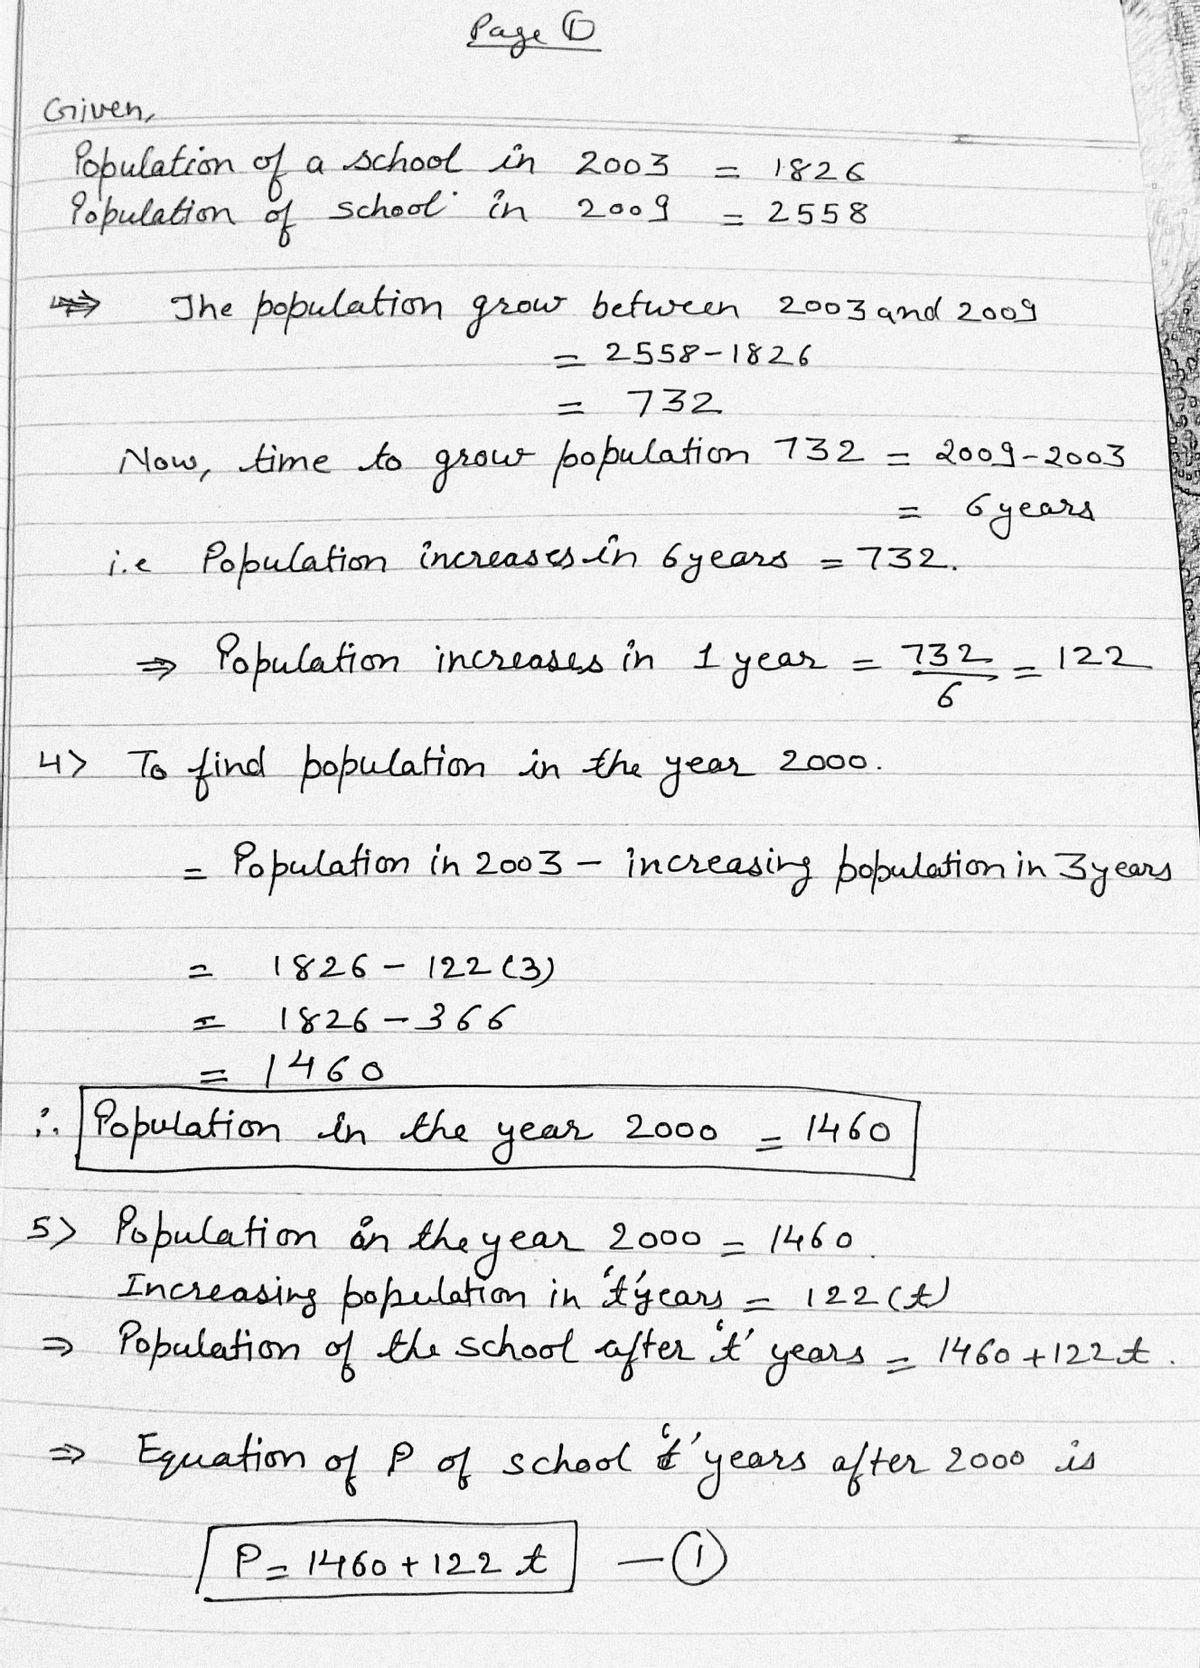 Page ①
Given,
Population of a school in 2003 = 1826
Population of school in 2009 = 2558
⇒ The population grow between 2003 and 2009
= 2558-1826
= 732
Now, time to grow population 732 = 2009-2003
= 6 years
i.e Population increases in 6 years = 732.
⇒ Population increases in 1 year = 732/6 = 122
4> To find population in the year 2000.
= Population in 2003 - increasing population in 3 years
= 1826 - 122 (3)
= 1826 - 366
= 1460
∴ Population in the year 2000 = 1460
5> Population in the year 2000 = 1460.
Increasing population in 't' years = 122 (t)
⇒ Population of the school after 't' years = 1460 + 122 t.
⇒ Equation of P of school 't' years after 2000 is
P = 1460 + 122 t - ①